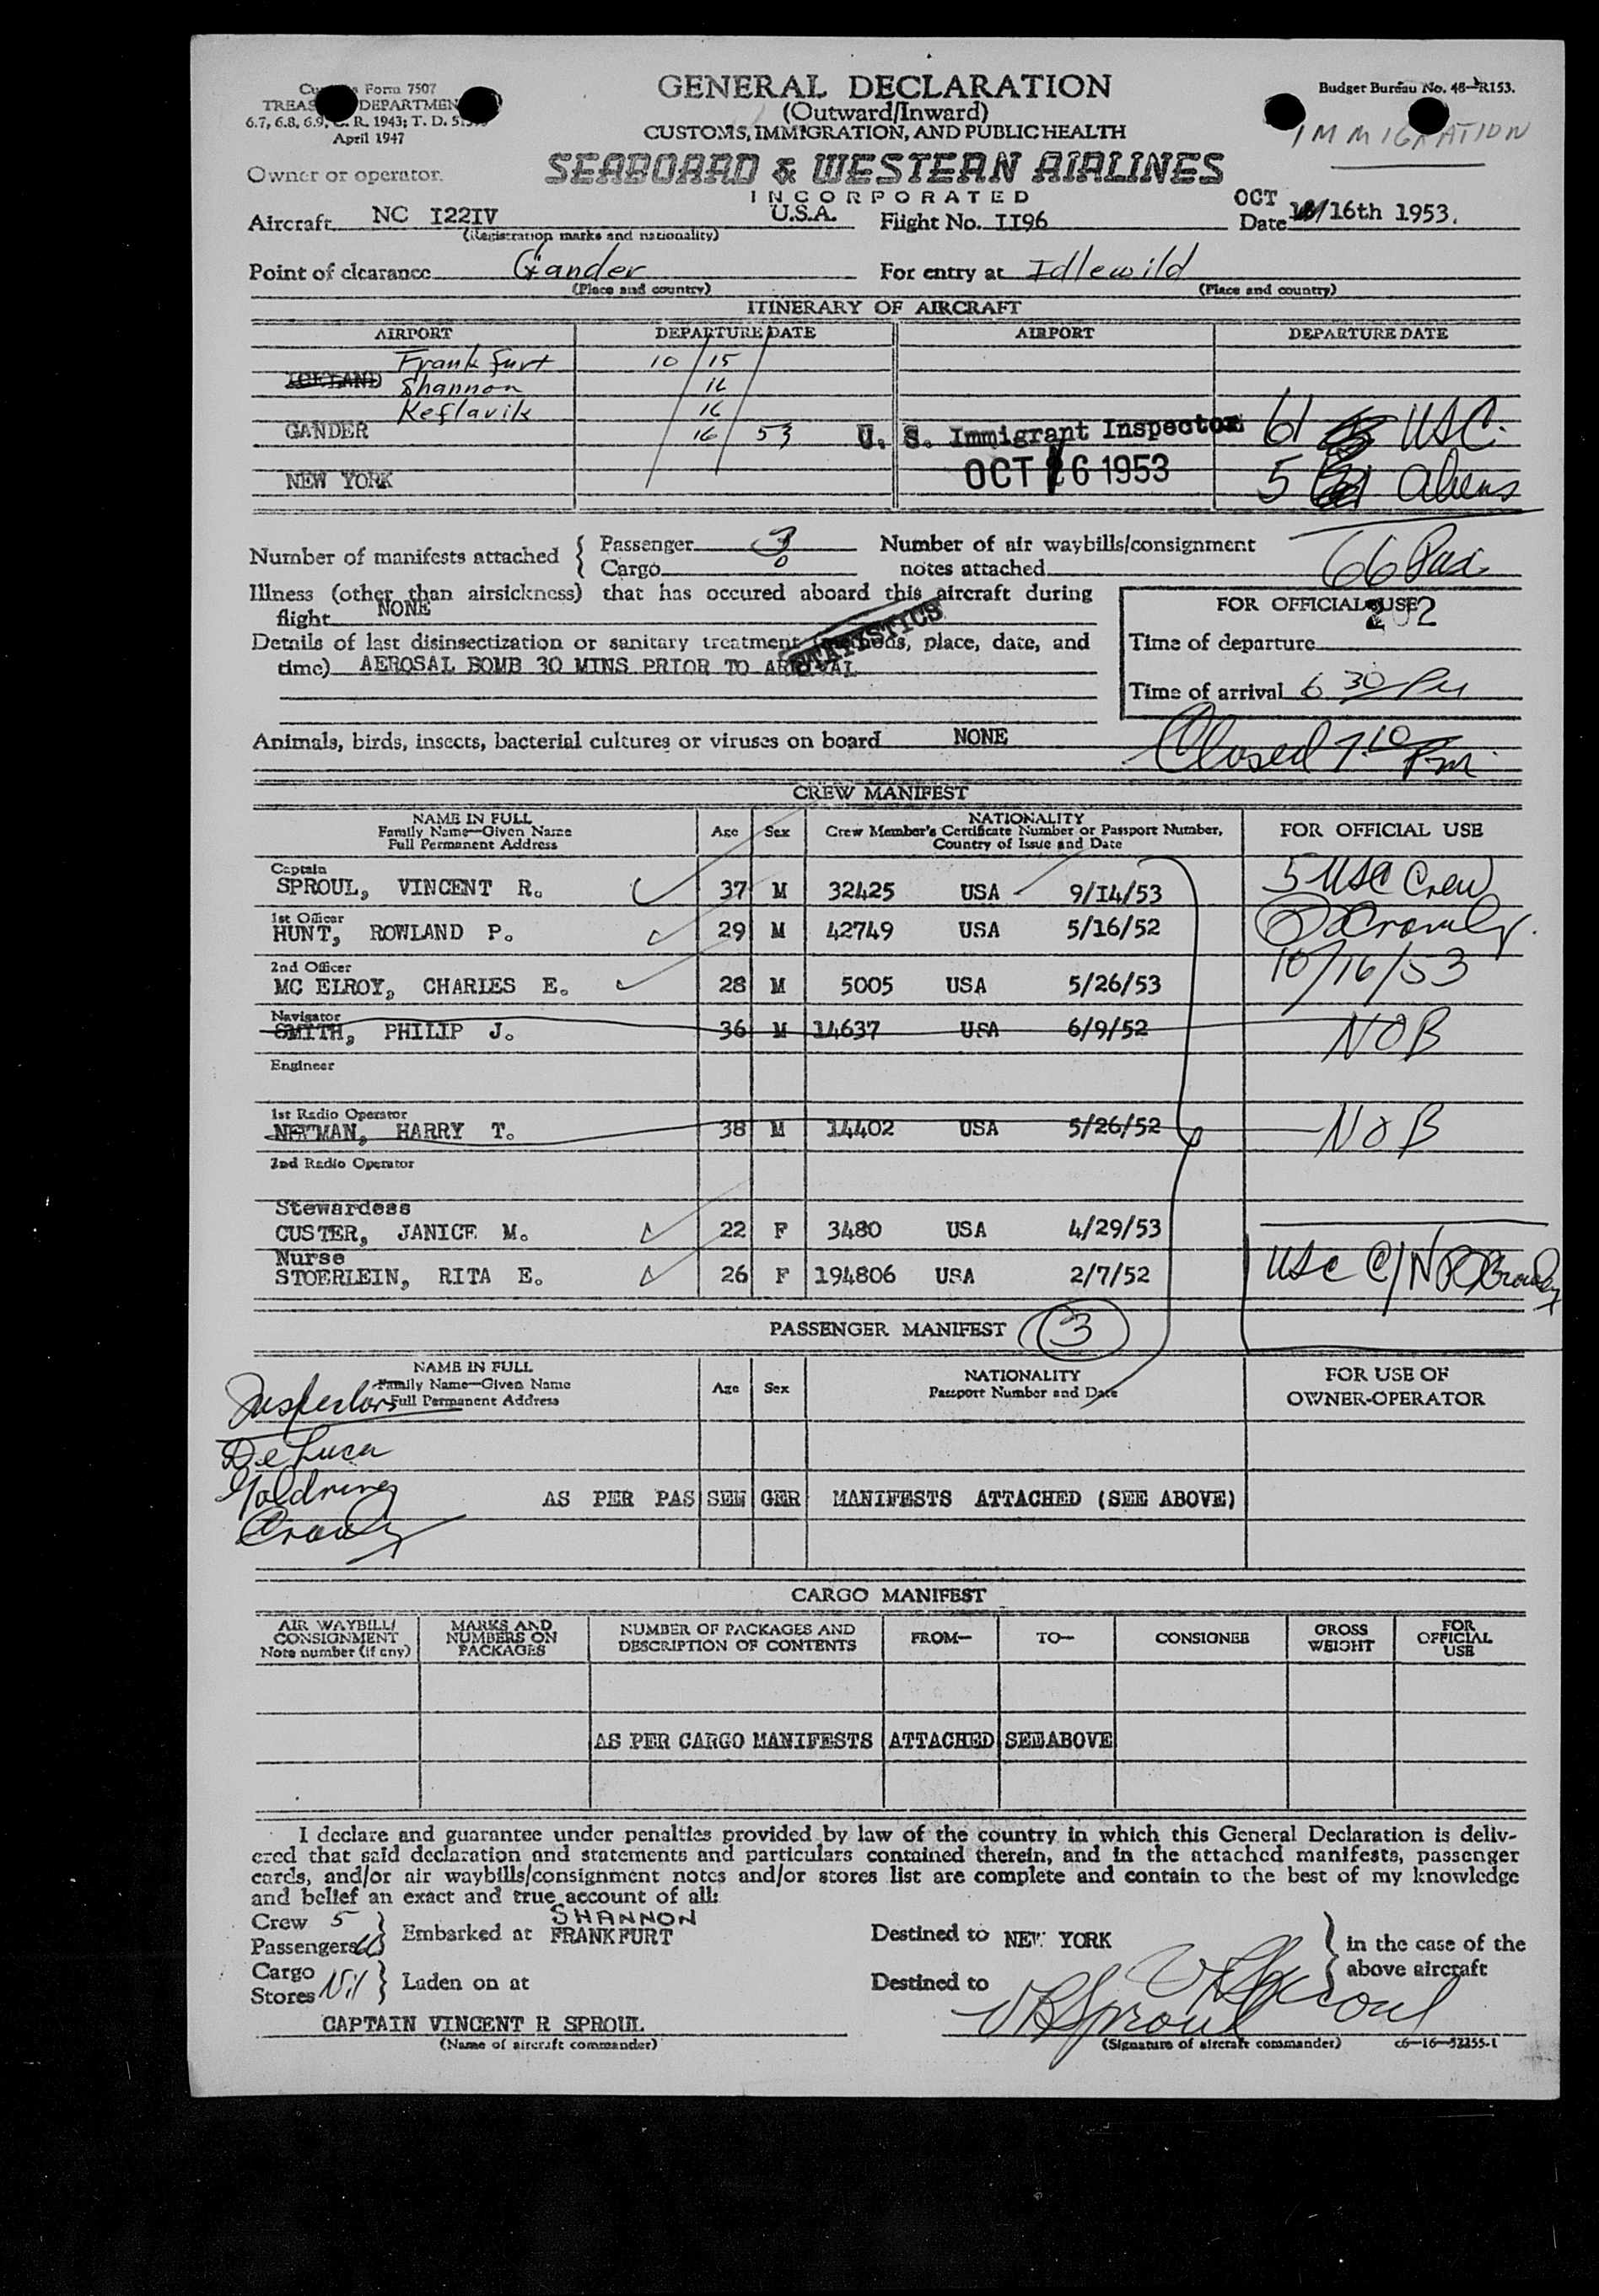 Form 7507
GENERAL DECLARATION
Budget Bureau No. 48-R153.
(Outward/Inward)
6.7, 6.8, 6.9, R. 1943; T. D.
CUSTOMS, IMMIGRATION, AND PUBLIC HEALTH
IMMIGRATION
April 1947
Owner or operator.
SEABOARD & WESTERN AIRLINES
INCORPORATED
Aircraft NC I22IV U.S.A. Flight No. II96 OCT Date 16th 1953.
(Registration marks and nationality)
Point of clearance Gander For entry at Idlewild
(Place and country) (Place and country)
ITINERARY OF AIRCRAFT
AIRPORT DEPARTURE DATE AIRPORT DEPARTURE DATE
Frankfurt 10/15
ICELAND Shannon 16
Keflavik 16
GANDER 16/53 U. S. Immigrant Inspector 61 USC.
NEW YORK OCT 16 1953 5 aliens
Number of manifests attached { Passenger 3 Number of air waybills/consignment 66 Pax
Cargo 0 notes attached
Illness (other than airsickness) that has occured aboard this aircraft during
flight NONE
FOR OFFICIAL USE
202
STATISTICS
Details of last disinsectization or sanitary treatment (methods, place, date, and
Time of departure
time) AEROSAL BOMB 30 MINS PRIOR TO ARRIVAL
Time of arrival 6 30 PM
Animals, birds, insects, bacterial cultures or viruses on board NONE
Closed 7 10 Pm.
CREW MANIFEST
NAME IN FULL
Family Name—Given Name
Full Permanent Address
Age Sex
NATIONALITY
Crew Member's Certificate Number or Passport Number,
Country of Issue and Date
FOR OFFICIAL USE
Captain
SPROUL, VINCENT R. 37 M 32425 USA 9/I4/53 5 USC Crew
1st Officer
HUNT, ROWLAND P. 29 M 42749 USA 5/16/52
2nd Officer
MC ELROY, CHARLES E. 28 M 5005 USA 5/26/53 10/16/53
Navigator
SMITH, PHILIP J. 36 M 14637 USA 6/9/52 NOB
Engineer
1st Radio Operator
NEWMAN, HARRY T. 38 M 14402 USA 5/26/52 NOB
2nd Radio Operator
Stewardess
CUSTER, JANICE M. 22 F 3480 USA 4/29/53
Nurse
STOERLEIN, RITA E. 26 F 194806 USA 2/7/52 USC C/N
PASSENGER MANIFEST 3
NAME IN FULL
Family Name—Given Name
Full Permanent Address
Age Sex
NATIONALITY
Passport Number and Date
FOR USE OF
OWNER-OPERATOR
Inspectors
De Luca
Goldring
AS PER PASSENGER MANIFESTS ATTACHED (SEE ABOVE)
CARGO MANIFEST
AIR WAYBILL/
CONSIGNMENT
Note number (if any)
MARKS AND
NUMBERS ON
PACKAGES
NUMBER OF PACKAGES AND
DESCRIPTION OF CONTENTS
FROM— TO— CONSIGNEE
GROSS
WEIGHT
FOR
OFFICIAL
USE
AS PER CARGO MANIFESTS ATTACHED SEE ABOVE
I declare and guarantee under penalties provided by law of the country in which this General Declaration is deliv-
ered that said declaration and statements and particulars contained therein, and in the attached manifests, passenger
cards, and/or air waybills/consignment notes and/or stores list are complete and contain to the best of my knowledge
and belief an exact and true account of all:
Crew 5 SHANNON
Passengers Embarked at FRANKFURT Destined to NEW YORK in the case of the
above aircraft
Cargo
Stores Nil Laden on at Destined to
VRSproul
VRSproul
CAPTAIN VINCENT R SPROUL
(Name of aircraft commander) (Signature of aircraft commander) c6—16—52255-1